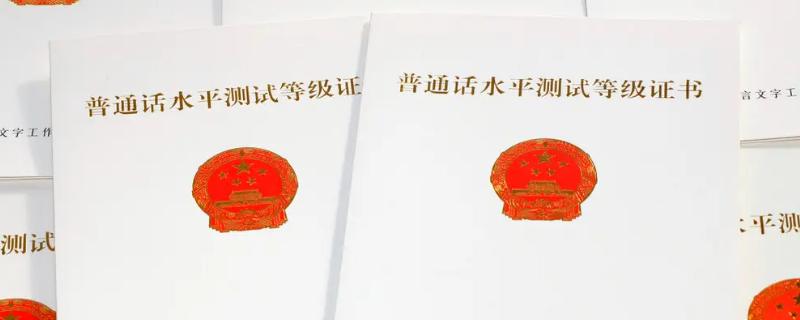 普通话水平测试等级证
普通话水平测试等级证书
文字工作
言文字工作
测试
平测